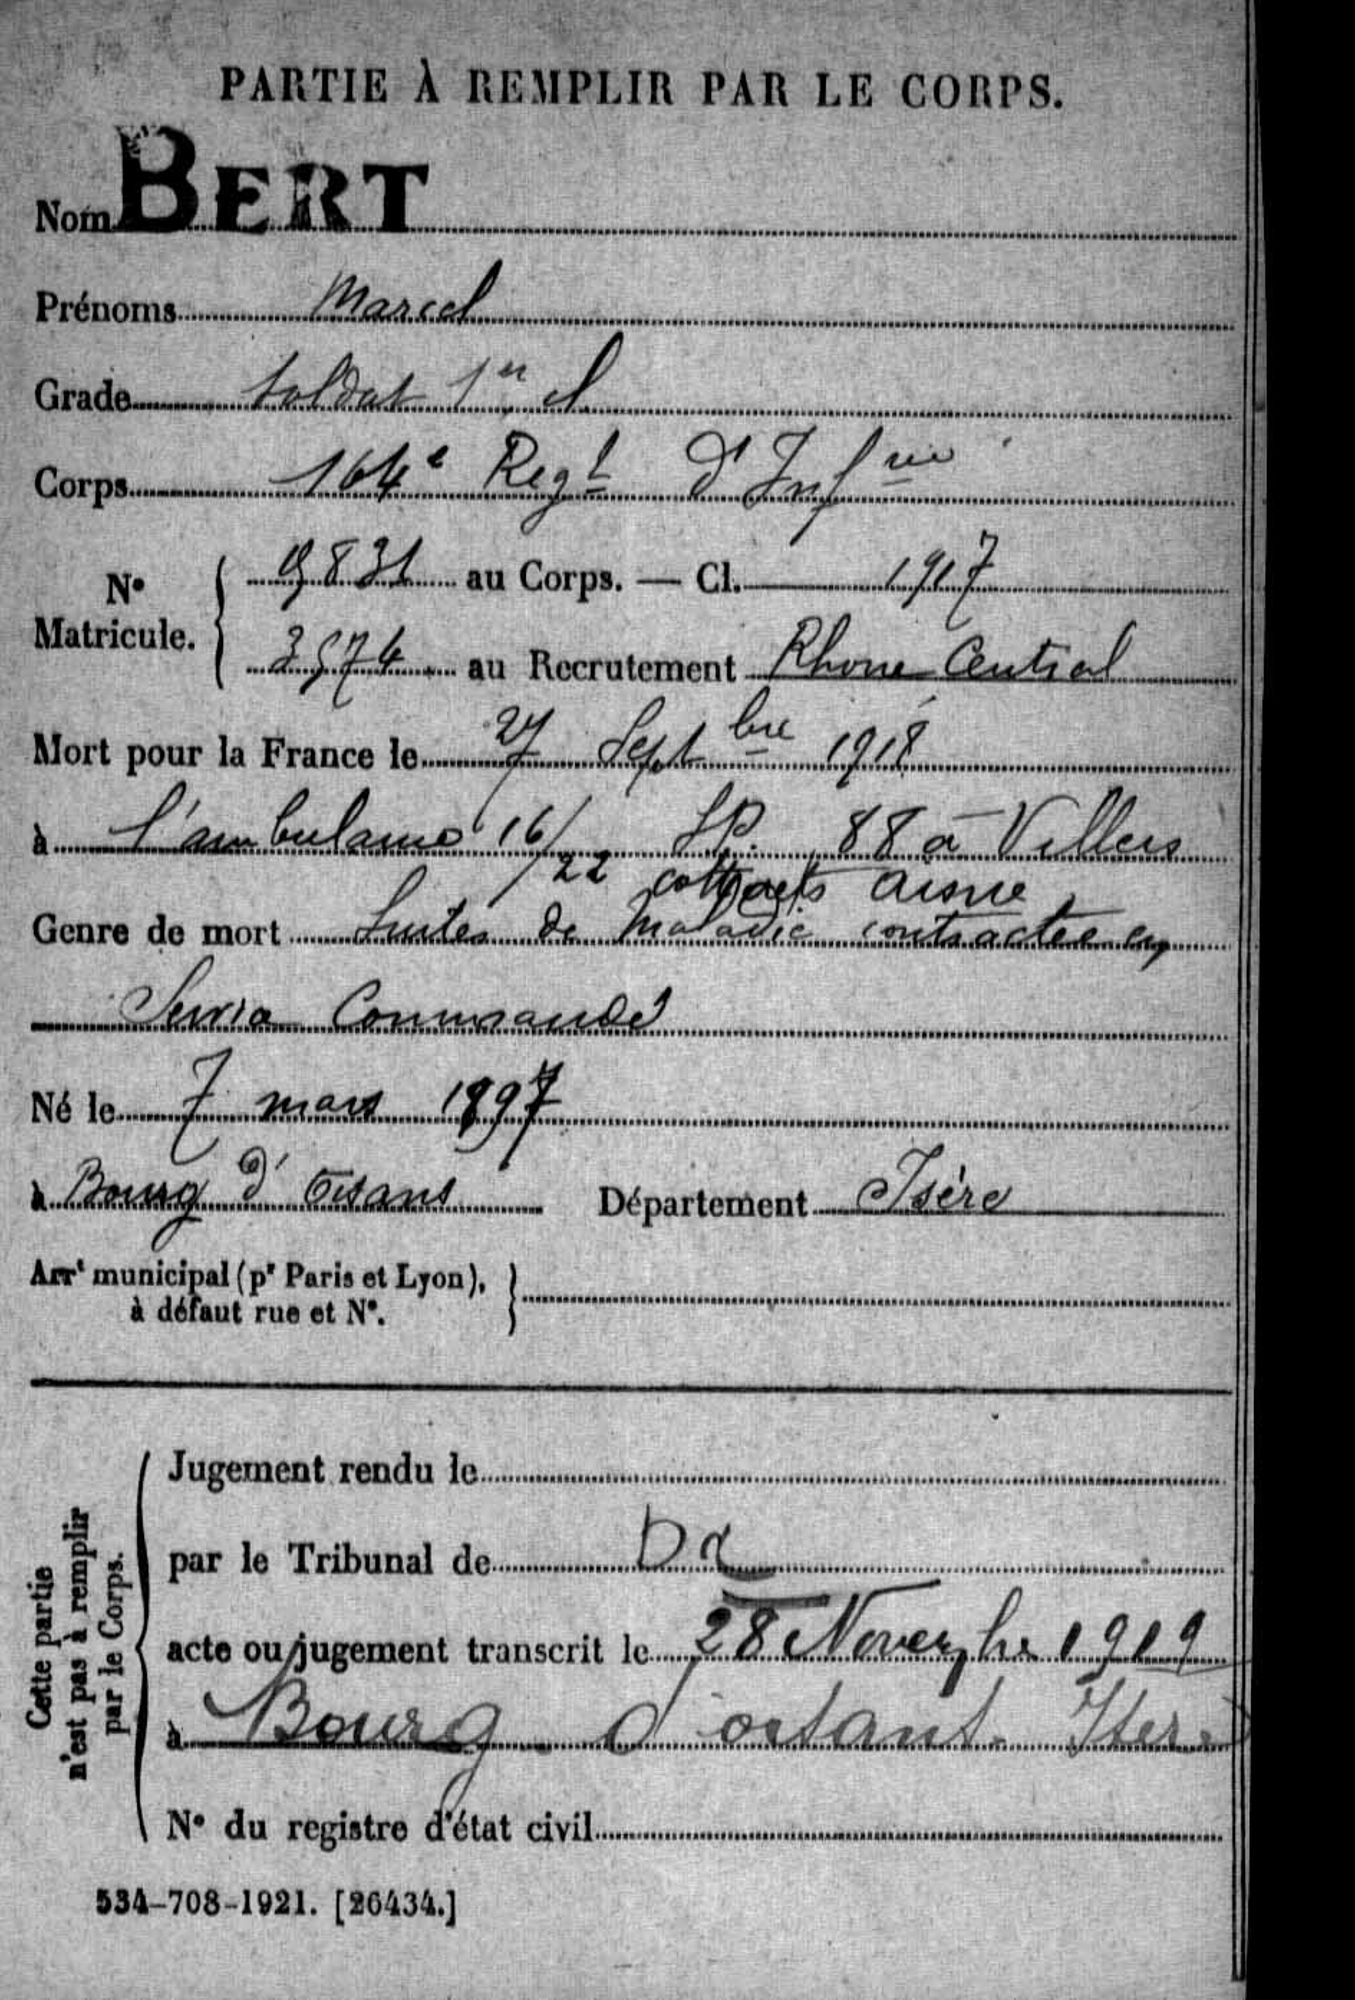 PARTIE À REMPLIR PAR LE CORPS.
Nom BERT
Prénoms Marcel
Grade Soldat 1er cl
Corps 164e Regt d'Infrie
No Matricule. { 9831 au Corps. — Cl. 1917
3574 au Recrutement Rhone Central
Mort pour la France le 27 Septbre 1918
à l'ambulance 16/22 S.P. 88 à Villers
cotterets Aisne
Genre de mort Suites de maladie contractée en
Service Commandé
Né le 7 mars 1897
à Bourg d'Oisans Département Isère
Arrt municipal (pr Paris et Lyon),
à défaut rue et No. }
Cette partie
n'est pas à remplir
par le Corps.
Jugement rendu le
par le Tribunal de
acte ou jugement transcrit le 28 Novembre 1919
à Bourg d'oisans Isère
No du registre d'état civil
534-708-1921. [26434.]